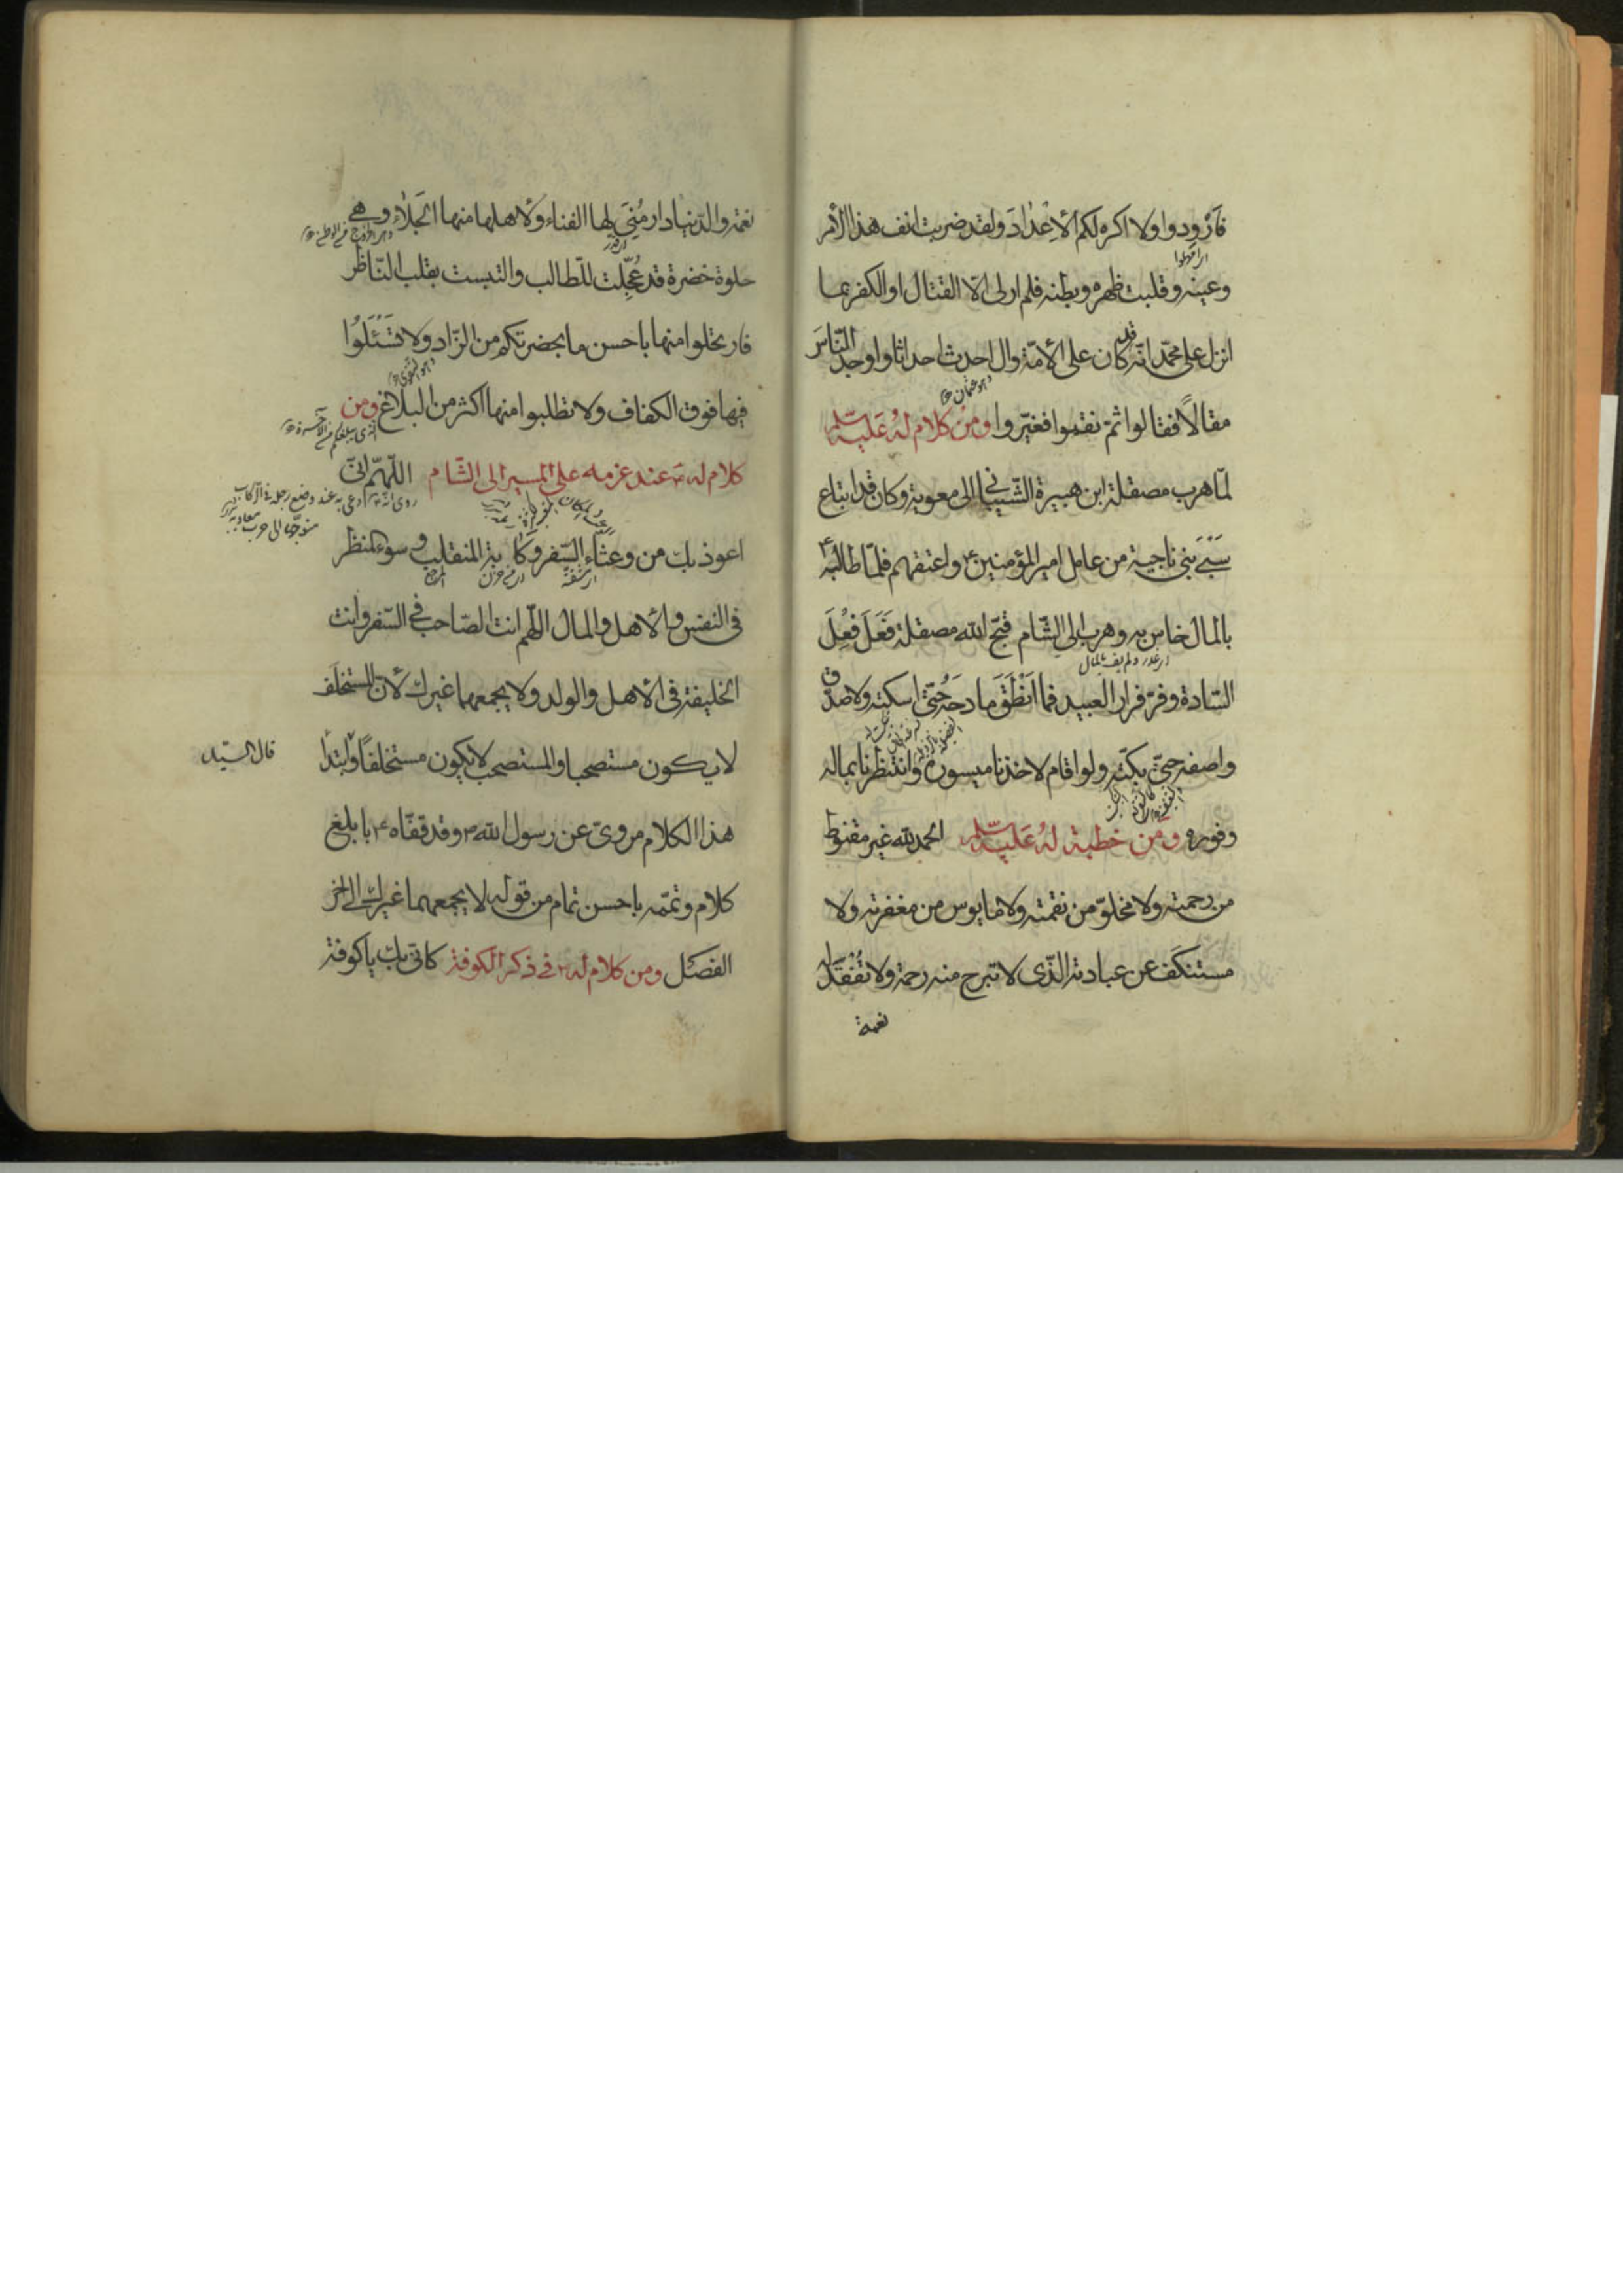 فَأَرْوِدوا ولا اكره لكم الأِعْدٰادَ ولقد ضربت انف هذا الأمر
وعينه وقلبت ظهره وبطنه فلم ار لى الّا القتال او الكفر بما
انزل على محمّد انّه قد كان على الأمّة وال احدث احداثا واوجد النّاسَ
وهو عثمان
مقالًا فقالوا ثمّ نقموا فغيّروا ومن كلام لهُ عَليه السّلام
لمّا هرب مصقلة ابن هبيرة الشّيبانى الى معوية وكان قد ابتاع
سَبْىَ بَنى ناجية من عامل امير المؤمنين ع واعتقهم فلمّا طالبَه ع
بالمال خاس به وهرب الى الشّام قبّح الله مصقلة فَعَلَ فِعْلَ
اى غدر ولم يف بالمال
السّادة وفرّ فرار العبيد فما اَنْطَقَ مادحَه حتّى اسكته ولا صدّق
واصفه حتّى بكّته ولو اقام لاخذنا ميسوره وانتظرنا بماله
وفوره ومن خطبة لهُ عَليه السّلام الحمد لله غير مقنوط
من رحمته ولا مخلوّ من نعمته ولا مايوس من مغفرته ولا
مستنكَف عن عبادته الّذى لا تبرح منه رحمة ولا تُفْقَدُ له
نعمة
نعمة والدّنيا دار مُنِىَ لها الفناء ولاهلها منها الجَلاٰء وهى
حلوة خضرة قد عُجِّلت للطّالب والتبست بقلب النّاظر
فارتحلوا منها باحسن ما بحضرتكم من الزّاد ولا تَسْئَلُوا
وهو التقوى
فيها فوق الكفاف ولا تطلبوا منها اكثر من البلاغ ومن
كلام له ع عند عزمه على المسير الى الشّام اللّهمّ انّى
روى انّه ع دعى به عند وضع رجله فى الركاب
متوجّها الى حرب معاوية
اعوذ بك من وعثاء السّفر وكآبة المنقلب وسوء المنظر
اى مشقّة
فى النفس والأهل والمال اللّهم انت الصّاحب فى السّفر وانت
الخليفة فى الأهل والولد ولا يجمعهما غيرك لأنّ المستخلَف
لا يكون مستصحبا والمستصحب لا يكون مستخلفًا وابتداء
قال السيّد
هذا الكلام مروىّ عن رسول الله ص وقد قفّاه ع بابلغ
كلام وتمّمه باحسن تمام من قوله لا يجمعهما غيرك الى اخر
الفصل ومن كلام له ع فى ذكر الكوفة كانّى بك يا كوفة